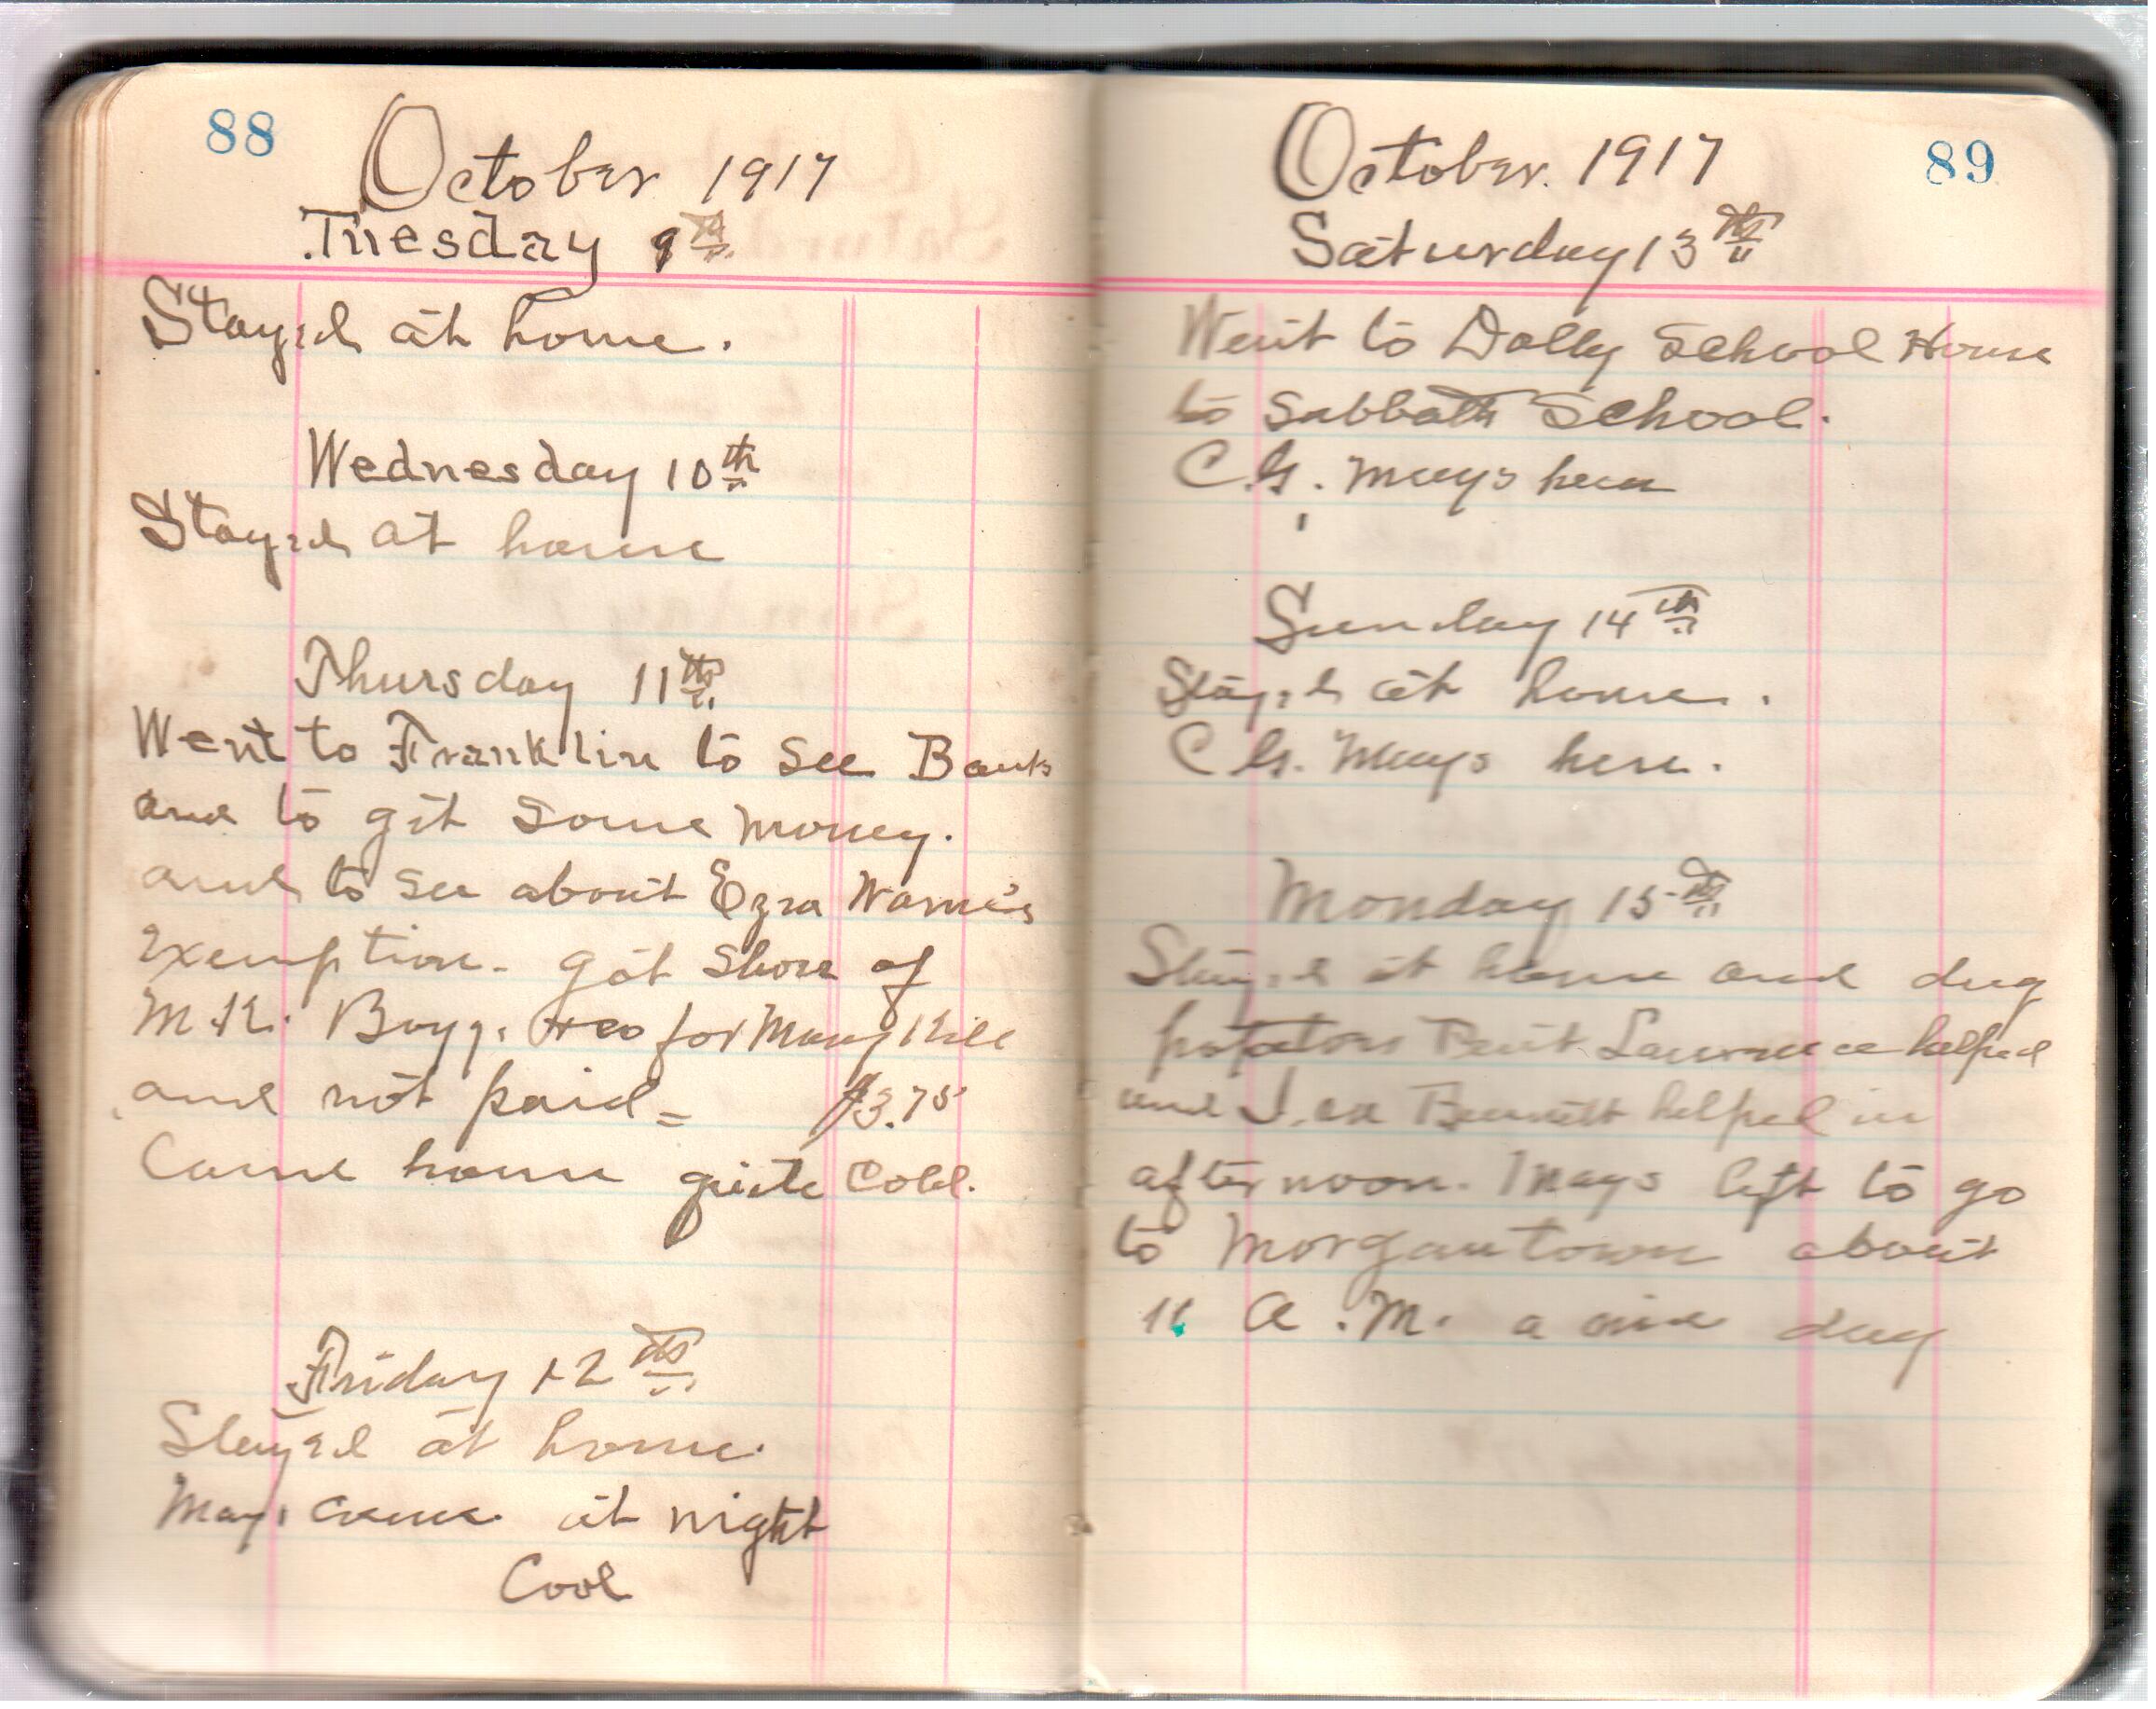 88
October 1917
Tuesday 9th
Stayed at home.
Wednesday 10th
Stayed at home
Thursday 11th
Went to Franklin to see Bank
and to git some money.
and to see about Ezra
Exemption. got of
M.K. Boggs for Mary
and not paid = $3.75
Came home quite Cold.
Friday 12th
Stayed at home.
Mays came at night
Cool
October. 1917
89
Saturday 13th
Went to Dolly School House
to Sabbath School.
C.G. Mays here
Sunday 14th
Stayed at home.
C.G. Mays here.
Monday 15th
Stayed at home and dug
potatoes Lawrence helped
and Bennett helped in
afternoon. Mays left to go
to Morgantown about
11 A.M. a day